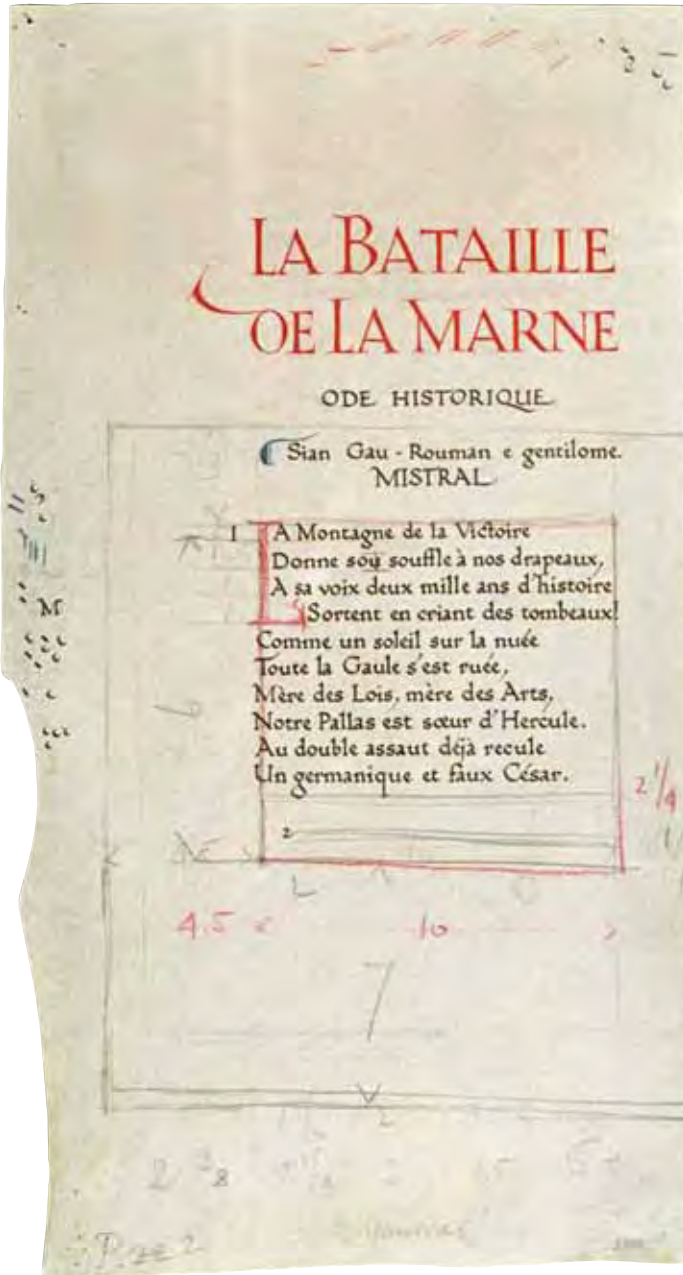 LA BATAILLE
DE LA MARNE
ODE HISTORIQUE
Sian Gau - Rouman e gentilome.
MISTRAL
1 LA Montagne de la Victoire
Donne son souffle à nos drapeaux,
A sa voix deux mille ans d'histoire
Sortent en criant des tombeaux!
Comme un soleil sur la nuée
Toute la Gaule s'est ruée,
Mère des Lois, mère des Arts,
Notre Pallas est sœur d'Hercule.
Au double assaut déjà recule
Un germanique et faux César.
M
6
2 1/4
2
4.5 < 10 >
7